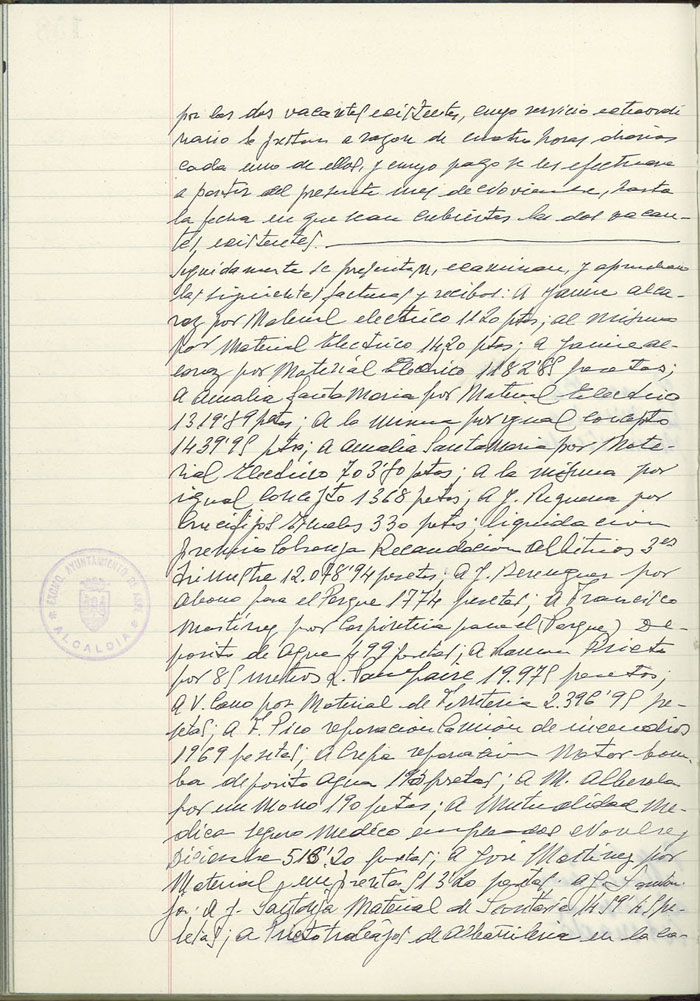 por las dos vacantes existentes, cuyo servicio extraordi
nario lo prestan a razon de cuatro horas diarias
cada uno de ellos, y cuyo pago se les efectuara
a partir del presente mes de Noviembre, hasta
la fecha en que sean cubiertas las dos vacan-
tes existentes.
Seguidamente se presentan, examinan, y aprueban
las siguientes facturas y recibos: A Jaime Alca-
raz por Material electrico 1120 ptas; al mismo
por Material Electrico 1420 ptas; a Jaime Al-
caraz por Material Electrico 1182'85 pesetas;
A Amalia Santamaria por Material Electrico
1319'89 ptas; A la misma por igual concepto
1439'95 ptas; A Amalia Santamaria por Mate
rial Electrico 703'80 ptas; a la misma por
igual concepto 1368 petas; A J. Requena por
Crucifijos 330 petas; liquidacion
premio Cobranza Recaudacion Arbitrios 3er
trimestre 12.078'94 pesetas; A J. Berenguer por
abono para el Parque 1774 pesetas; A Francisco
Martinez por Carpinteria para el (Parque) De-
posito de agua 499 pesetas; A Prieto
por 85 metros 19.975 pesetas;
A V. Cano por Material de Ferreteria 2.396'95 pe-
setas; A F. Pico reparacion Camion de incendios
1969 pesetas; a Crespo reparacion Motor bom
ba deposito agua pesetas; a M. Alberola
por un Mono 190 petas; A Mutualidad Me-
dica seguro Medico empleados Novbre y
Diciembre 516'20 pesetas; a José Martinez por
Material imprenta 513'20 pesetas;
A J. Santonja Material de pe-
setas; a Prieto trabajos de Albañileria en la ca-
EXCMO. AYUNTAMIENTO DE ASPE
ALCALDIA